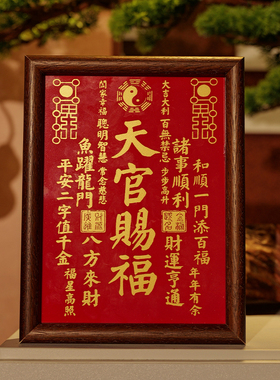 和順一門添百福
年年有余
諸事順利
財運亨通
大吉大利
百無禁忌
步步高升
天官賜福
闔家幸福
聰明智慧
常念慈悲
魚躍龍門
八方來財
平安二字值千金
福星高照